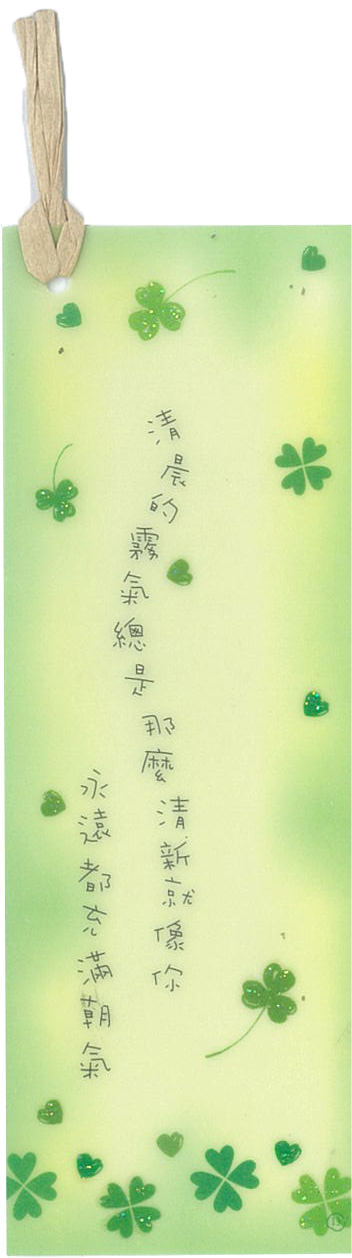 清晨的霧氣總是那麼清新就像你
永遠都充滿朝氣